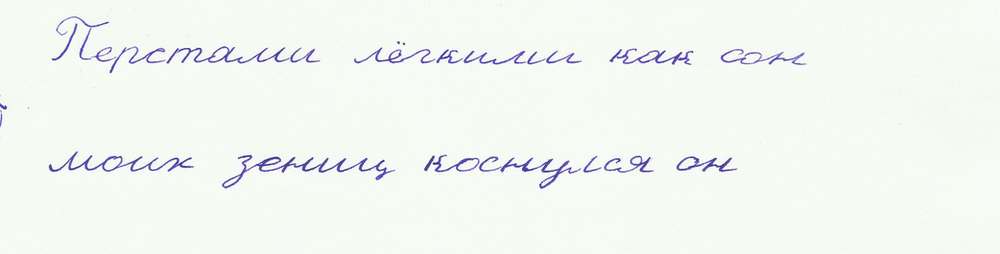 Перстами лёгкими как сон
моих зениц коснулся он